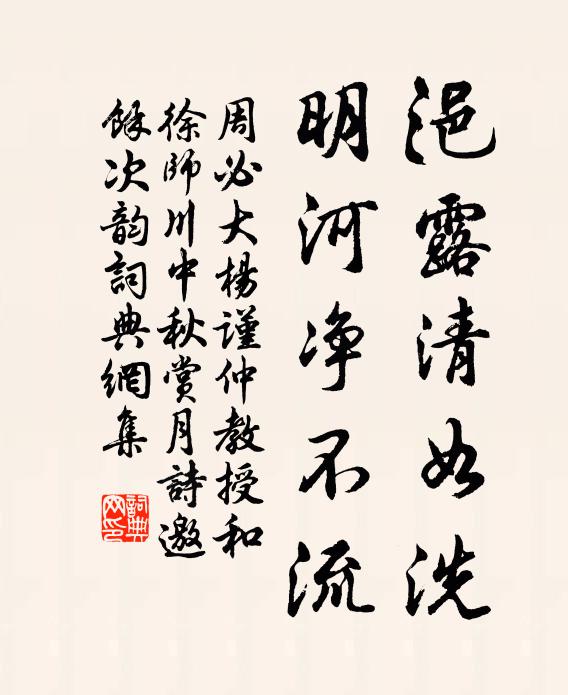 浥露清如洗
明河净不流
周必大楊謹仲教授和
徐師川中秋賞月詩邀
餘次韵詞典網集
詞典網印